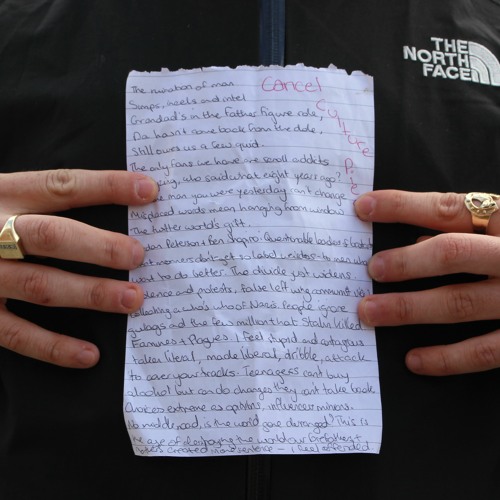 THE
NORTH
FACE
Cancel
Culture
Pie
The ruination of man
Simps, incels and intel
Grandad's in the father figure role,
Da hasn't come back from the dole,
Still owes us a few quid.
The only fans we have are scroll addicts
who said what eight years ago?
man you were yesterday can't change
Misplaced words mean hanging from window
The twitter world's gift.
Jordan Peterson & Ben Shapiro. Questionable leaders of
don't get so label
want to do better. The divide just widens
violence and protests, false left wing communist
following a who's who of Nazis. People ignore
gulags and the few million that Stalin killed
Famines & Pogres. I feel stupid and outrageous
taken literal, made liberal, dribble, attack
to cover your tracks. Teenagers can't buy
alcohol but can do changes they can't take back
Choices extreme as opinions, influencer minions.
No middle road, is the world gone deranged? This is
age of despising the world our
created sentence - I feel offended